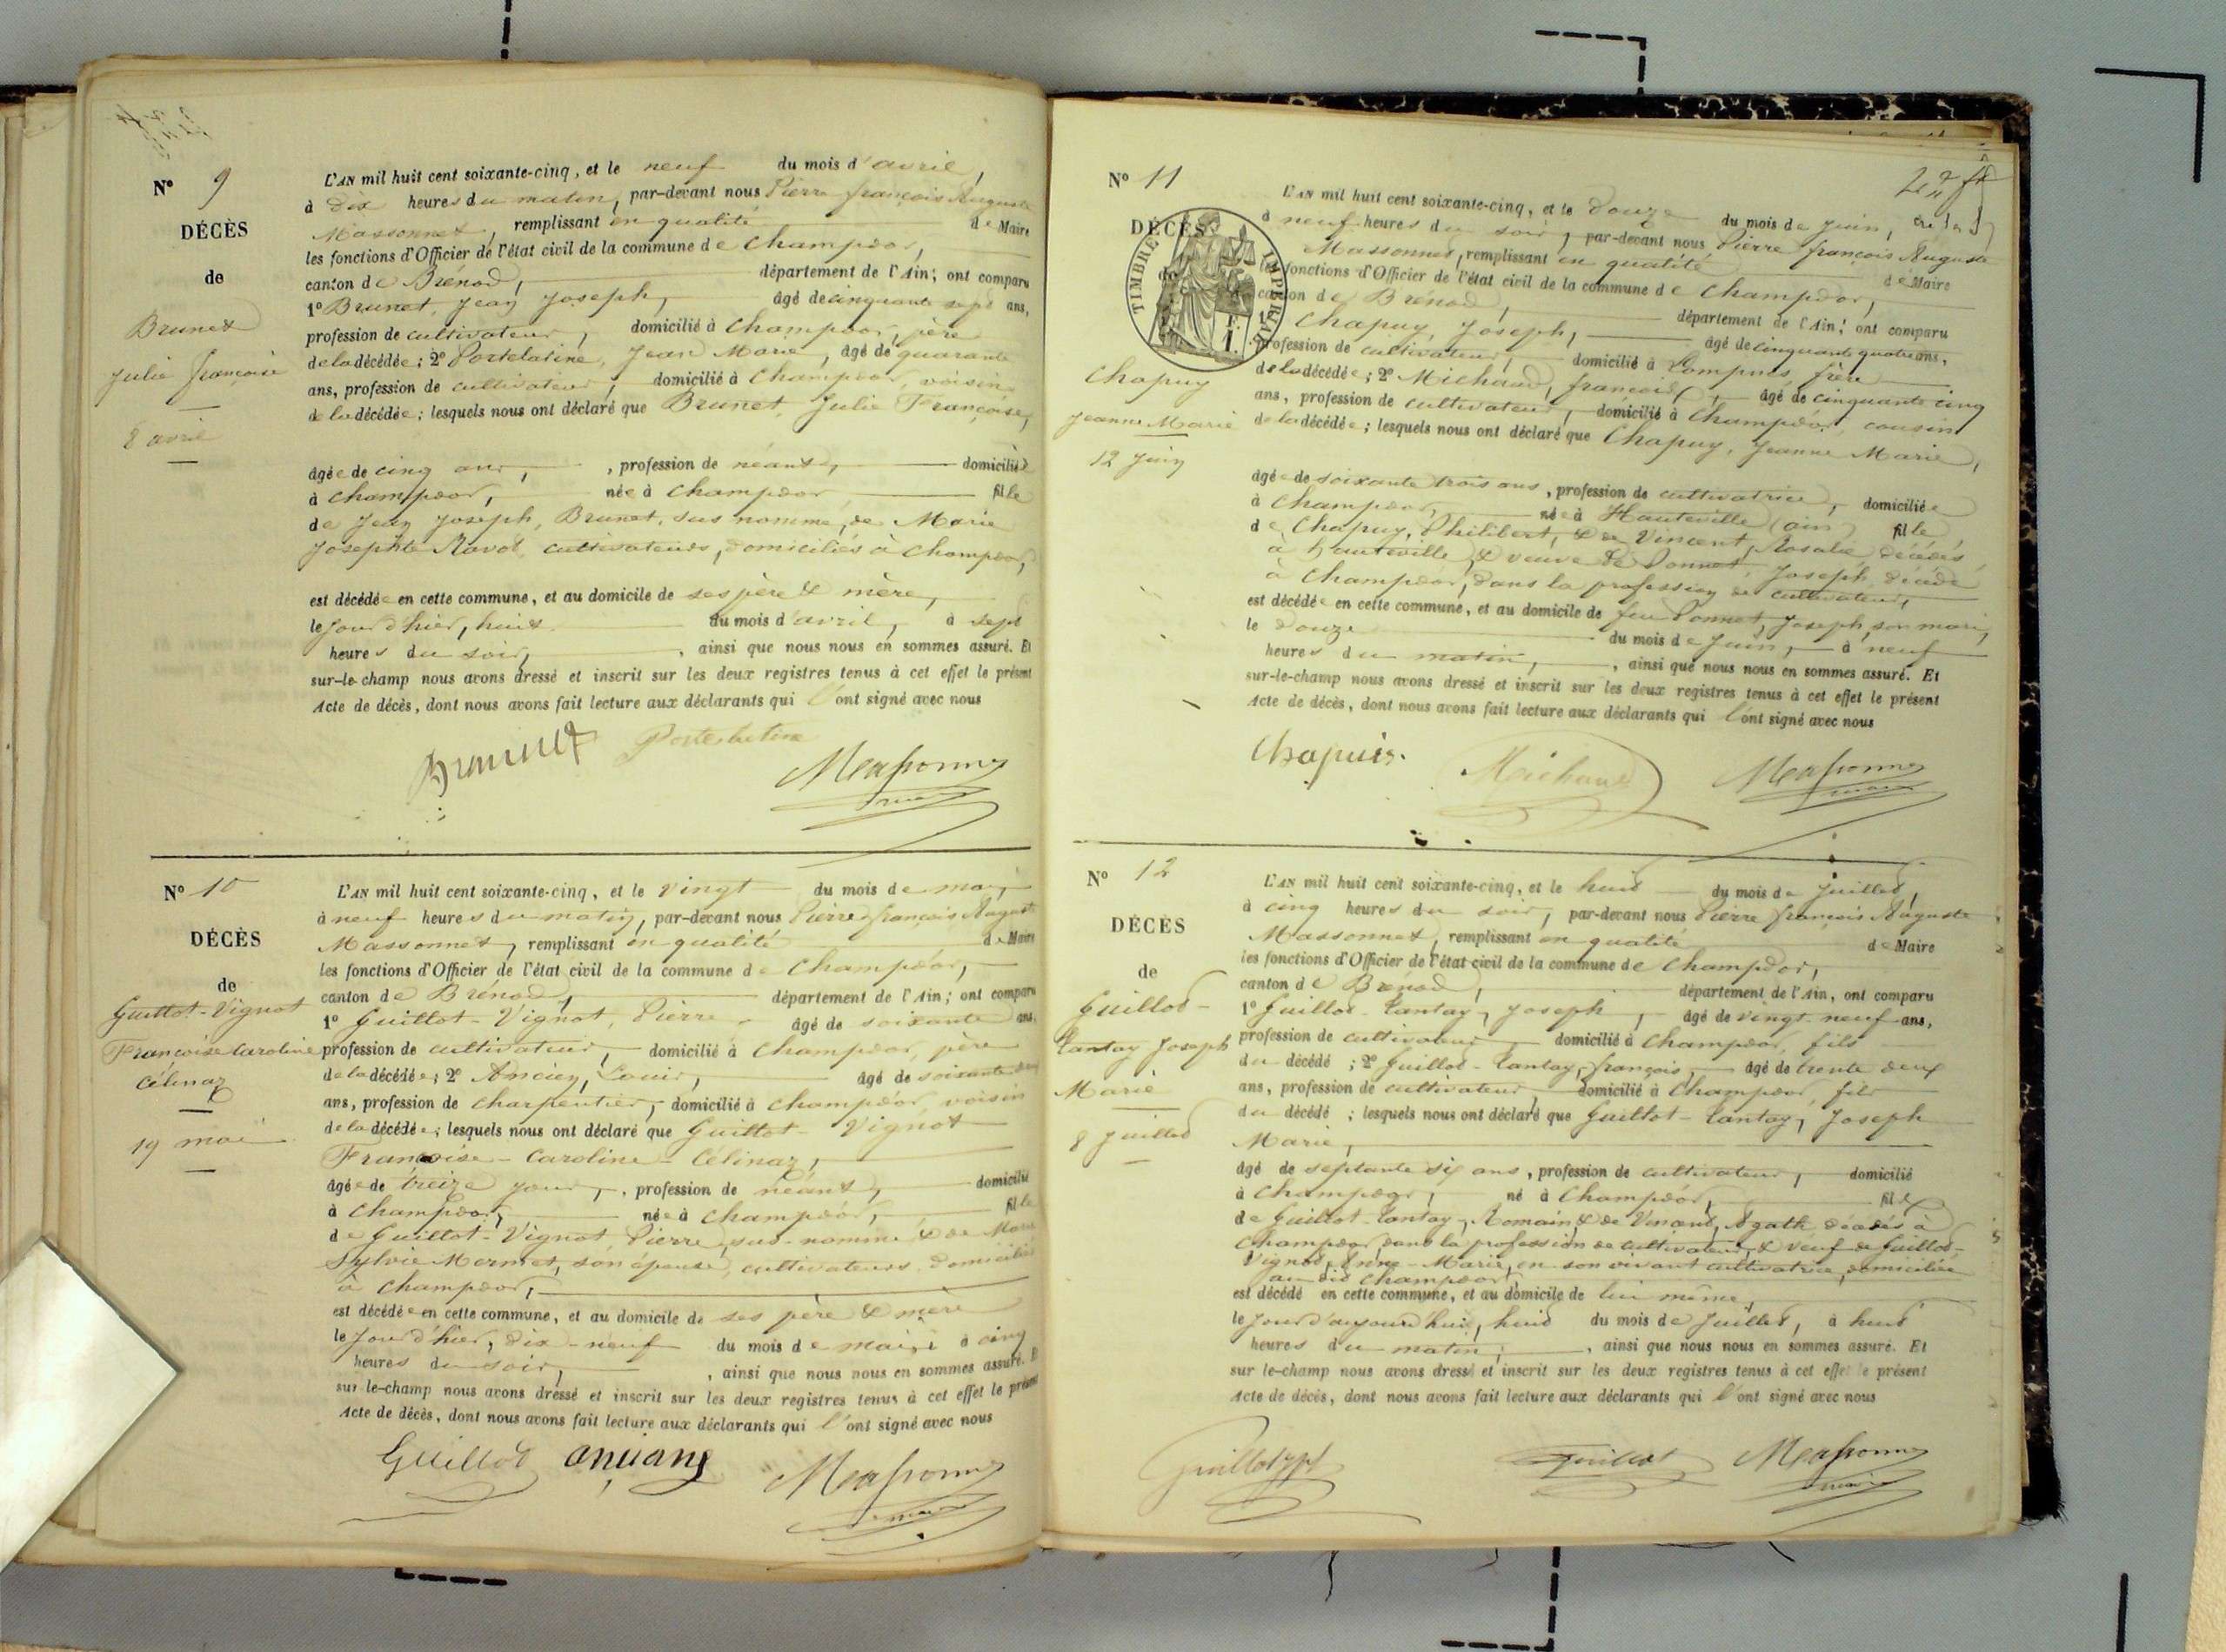 N° 9
DÉCÈS
de
Brunet
Julie françoise
8 avril
L'AN mil huit cent soixante-cinq, et le neuf du mois d'avril,
à dix heures du matin, par-devant nous Pierre françois Auguste
Massonnet, remplissant en qualité de Maire
les fonctions d'Officier de l'état civil de la commune de Champdor,
canton de Brénod, département de l'Ain; ont comparu
1° Brunet, Jean Joseph, âgé de cinquante sept ans,
profession de cultivateur, domicilié à Champdor, père
de la décédée; 2° Portelatine, Jean Marie, âgé de quarante
ans, profession de cultivateur, domicilié à Champdor, voisin
de la décédée; lesquels nous ont déclaré que Brunet, Julie Françoise,
âgée de cinq ans, profession de néant, domiciliée
à Champdor, née à Champdor fille
de Jean Joseph, Brunet, sus nommé, de Marie
Josephte Ravot, cultivateurs, domiciliés à Champdor,
est décédée en cette commune, et au domicile de ses père & mère,
le Jour d'hier, huit du mois d'avril, à sept
heures du soir, ainsi que nous nous en sommes assuré. Et
sur-le-champ nous avons dressé et inscrit sur les deux registres tenus à cet effet le présent
Acte de décès, dont nous avons fait lecture aux déclarants qui l'ont signé avec nous
Brunet Portelatine
Massonnet
maire
N° 10
DÉCÈS
de
Guillot-Vignot
Françoise Caroline
Célinaz
19 mai
L'AN mil huit cent soixante-cinq, et le vingt du mois de mai,
à neuf heures du matin, par-devant nous Pierre françois Auguste
Massonnet, remplissant en qualité de Maire
les fonctions d'Officier de l'état civil de la commune de Champdor,
canton de Brénod, département de l'Ain; ont comparu
1° Guillot-Vignot, Pierre âgé de soixante ans,
profession de cultivateur, domicilié à Champdor, père
de la décédée; 2° Ancian, Louis, âgé de soixante
ans, profession de charpentier, domicilié à Champdor, voisin
de la décédée; lesquels nous ont déclaré que Guillot-Vignot
Françoise-Caroline-Célinaz,
âgée de treize jours, profession de néant, domicilié
à Champdor, née à Champdor, fille
de Guillot-Vignot Pierre, sus-nommé & de Marie
Sylvie Mermet, son épouse, cultivateurs, domiciliés
à Champdor,
est décédée en cette commune, et au domicile de ses père & mère
le Jour d'hier, dix-neuf du mois de mai, à cinq
heures du soir, ainsi que nous nous en sommes assuré. Et
sur le-champ nous avons dressé et inscrit sur les deux registres tenus à cet effet le présent
Acte de décès, dont nous avons fait lecture aux déclarants qui l'ont signé avec nous
Guillot anciant
Massonnet
maire
N° 11
DÉCÈS
de
TIMBRE IMPÉRIAL
Chapuy
Jeanne Marie
12 Juin
L'AN mil huit cent soixante-cinq, et le douze du mois de Juin,
à neuf heures du soir, par-devant nous Pierre françois Auguste
Massonnet, remplissant en qualité de Maire
les fonctions d'Officier de l'état civil de la commune de Champdor,
canton de Brénod, département de l'Ain; ont comparu
1° Chapuy, Joseph, âgé de cinquante quatre ans,
profession de cultivateur, domicilié à Lompnes, frère
de la décédée; 2° Michaud, françois, âgé de cinquante cinq
ans, profession de cultivateur, domicilié à Champdor, cousin
de la décédée; lesquels nous ont déclaré que Chapuy, Jeanne Marie,
âgée de soixante trois ans, profession de cultivatrice, domiciliée
à Champdor, née à Hauteville (ain) fille
de Chapuy, Philibert, & de Vincent, Rosalie décédés
à hauteville, & veuve de Bonnet, Joseph, décédé
à Champdor, dans la profession de cultivateur,
est décédée en cette commune, et au domicile de feu Bonnet, Joseph, son mari,
le douze du mois de Juin, à neuf
heures du matin, ainsi que nous nous en sommes assuré. Et
sur-le-champ nous avons dressé et inscrit sur les deux registres tenus à cet effet le présent
Acte de décès, dont nous avons fait lecture aux déclarants qui l'ont signé avec nous
Chapuis. Michaud Massonnet
maire
N° 12
DÉCÈS
de
Guillot-
Tantay Joseph
Marie
8 Juillet
L'AN mil huit cent soixante-cinq, et le huit du mois de Juillet,
à cinq heures du soir, par-devant nous Pierre françois Auguste
Massonnet, remplissant en qualité de Maire
les fonctions d'Officier de l'état civil de la commune de Champdor,
canton de Brénod, département de l'Ain, ont comparu
1° Guillot-Tantay, Joseph, âgé de vingt-neuf ans,
profession de cultivateur, domicilié à Champdor, fils
du décédé; 2° Guillot-Tantay, françois, âgé de trente deux
ans, profession de cultivateur, domicilié à Champdor, fils
du décédé; lesquels nous ont déclaré que Guillot-Tantay, Joseph
Marie,
âgé de septante six ans, profession de cultivateur, domicilié
à Champdor, né à Champdor, fils
de Guillot-Tantay, Romain, & de Vinant, Agathe décédés à
Champdor, dans la profession de cultivateur, & veuf de Guillot-
Vignot, Anne-Marie, en son vivant cultivatrice, domiciliée
au dit Champdor,
est décédé en cette commune, et au domicile de lui même,
le Jour d'aujourd'hui, huit du mois de Juillet, à huit
heures du matin, ainsi que nous nous en sommes assuré. Et
sur le-champ nous avons dressé et inscrit sur les deux registres tenus à cet effet le présent
Acte de décès, dont nous avons fait lecture aux déclarants qui l'ont signé avec nous
Guillot jph Guillot Massonnet
maire